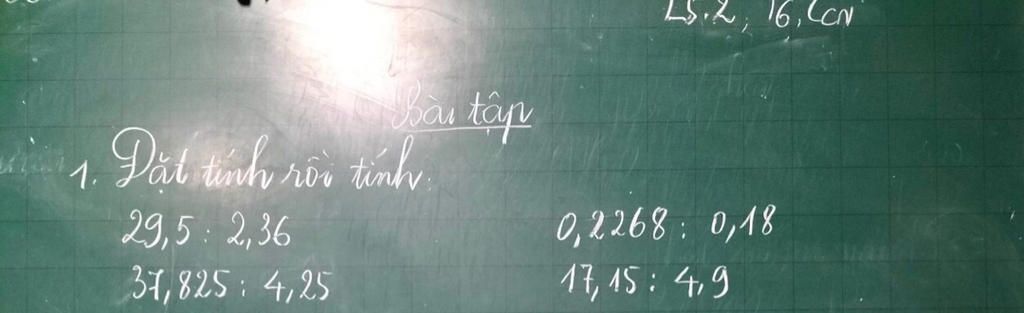 Bài tập
1. Đặt tính rồi tính:
29,5 : 2,36 0,2268 : 0,18
37,825 : 4,25 17,15 : 4,9